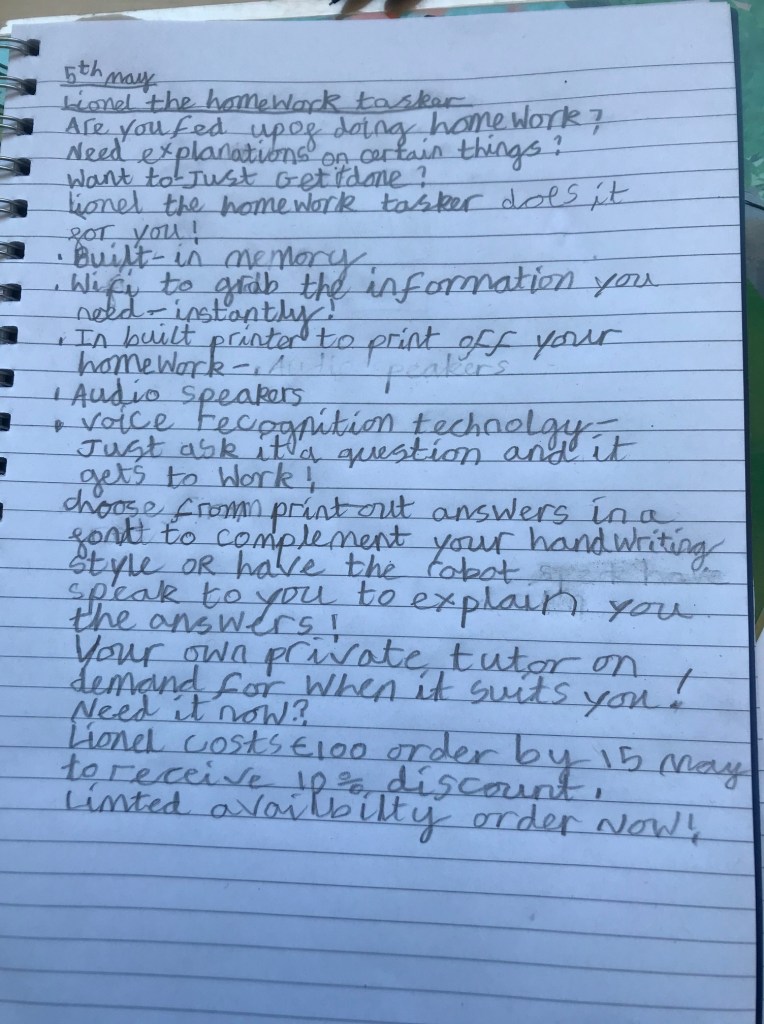 5th may
Lionel the homework tasker
Are you fed up of doing homework?
Need explanations on certain things?
Want to Just Get it done?
Lionel the homework tasker does it
for you!
• Built-in memory
• Wifi to grab the information you
need - instantly!
• In built printer to print off your
homework - . Audio speakers
• Audio speakers
• voice recognition technolgy -
Just ask it a question and it
gets to work!
choose from print out answers in a
font to complement your handwriting
style OR have the robot
speak to you to explain you
the answers!
Your own private tutor on
demand for when it suits you!
Need it now?
Lionel costs £100 order by 15 may
to receive 10% discount.
Limted availbilty order NOW!